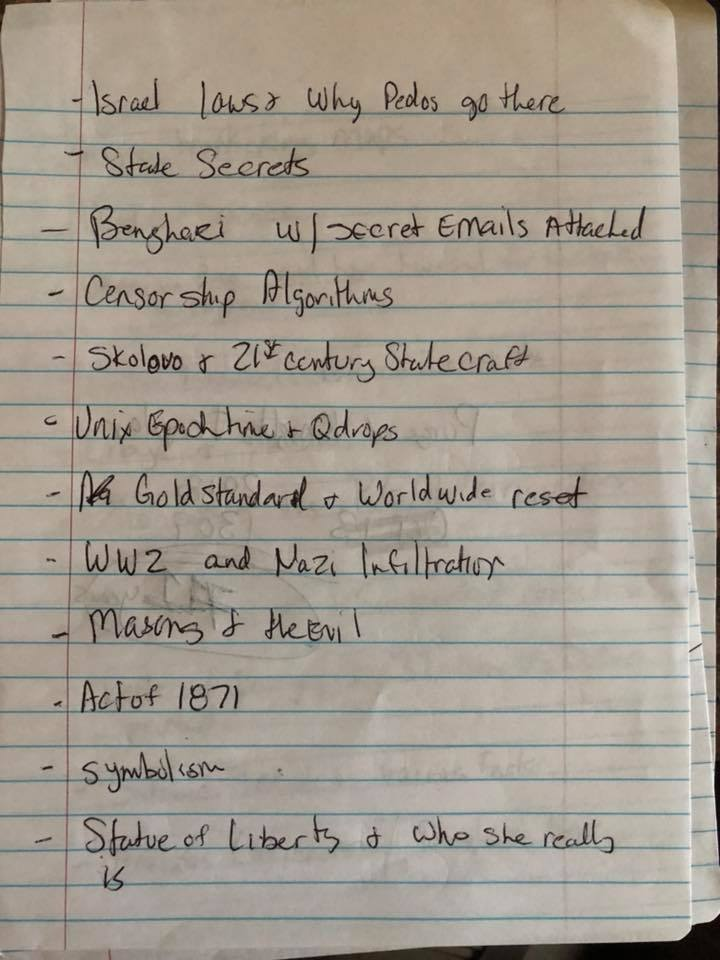 - Israel laws & Why Pedos go there
- State Secrets
- Benghazi w/ secret Emails Attached
- Censorship Algorithms
- Skolovo & 21st century Statecraft
- Unix Epoch time & Qdrops
- Gold standard & Worldwide reset
- WW2 and Nazi Infiltration
- Masons & the Evil
- Act of 1871
- Symbolism
- Statue of Liberty & who she really
is